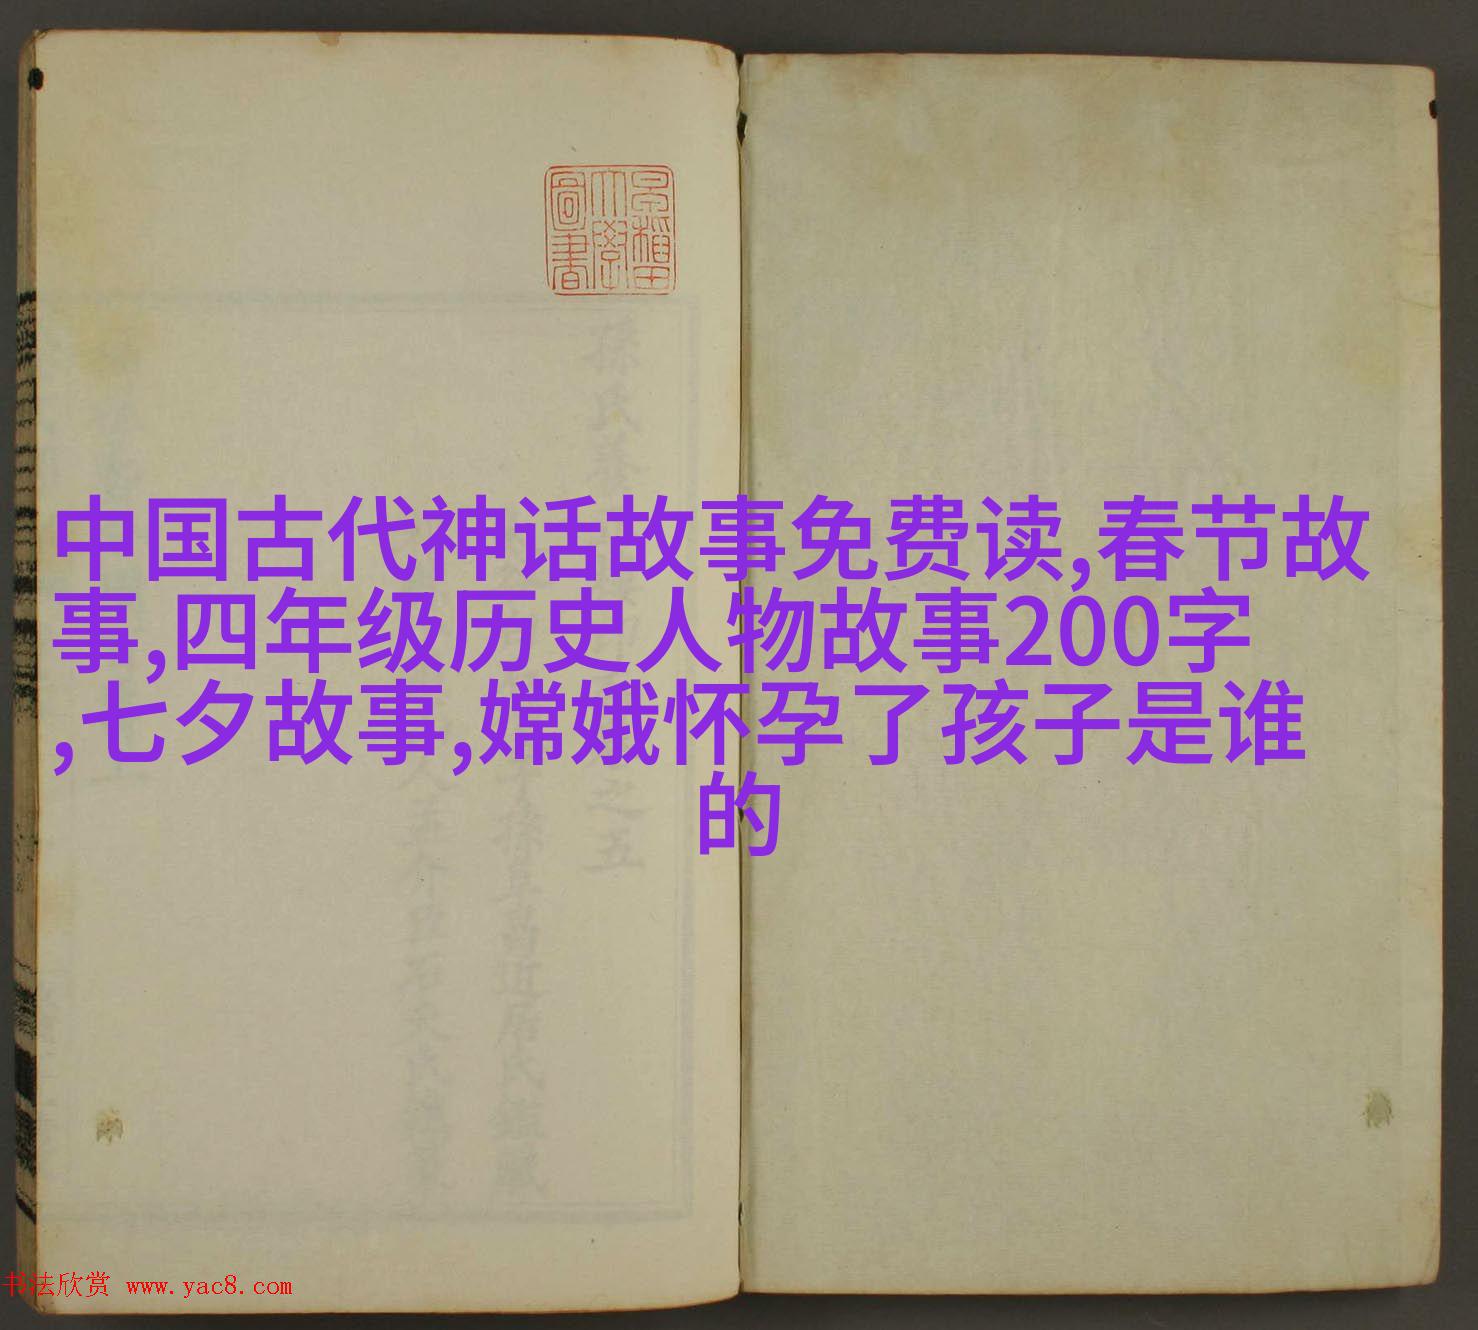 早稲田
大學
圖書
中国古代神话故事免费读,春节故
事,四年级历史人物故事200字
,七夕故事,嫦娥怀孕了孩子是谁
的
书法欣赏 www.yac8.com